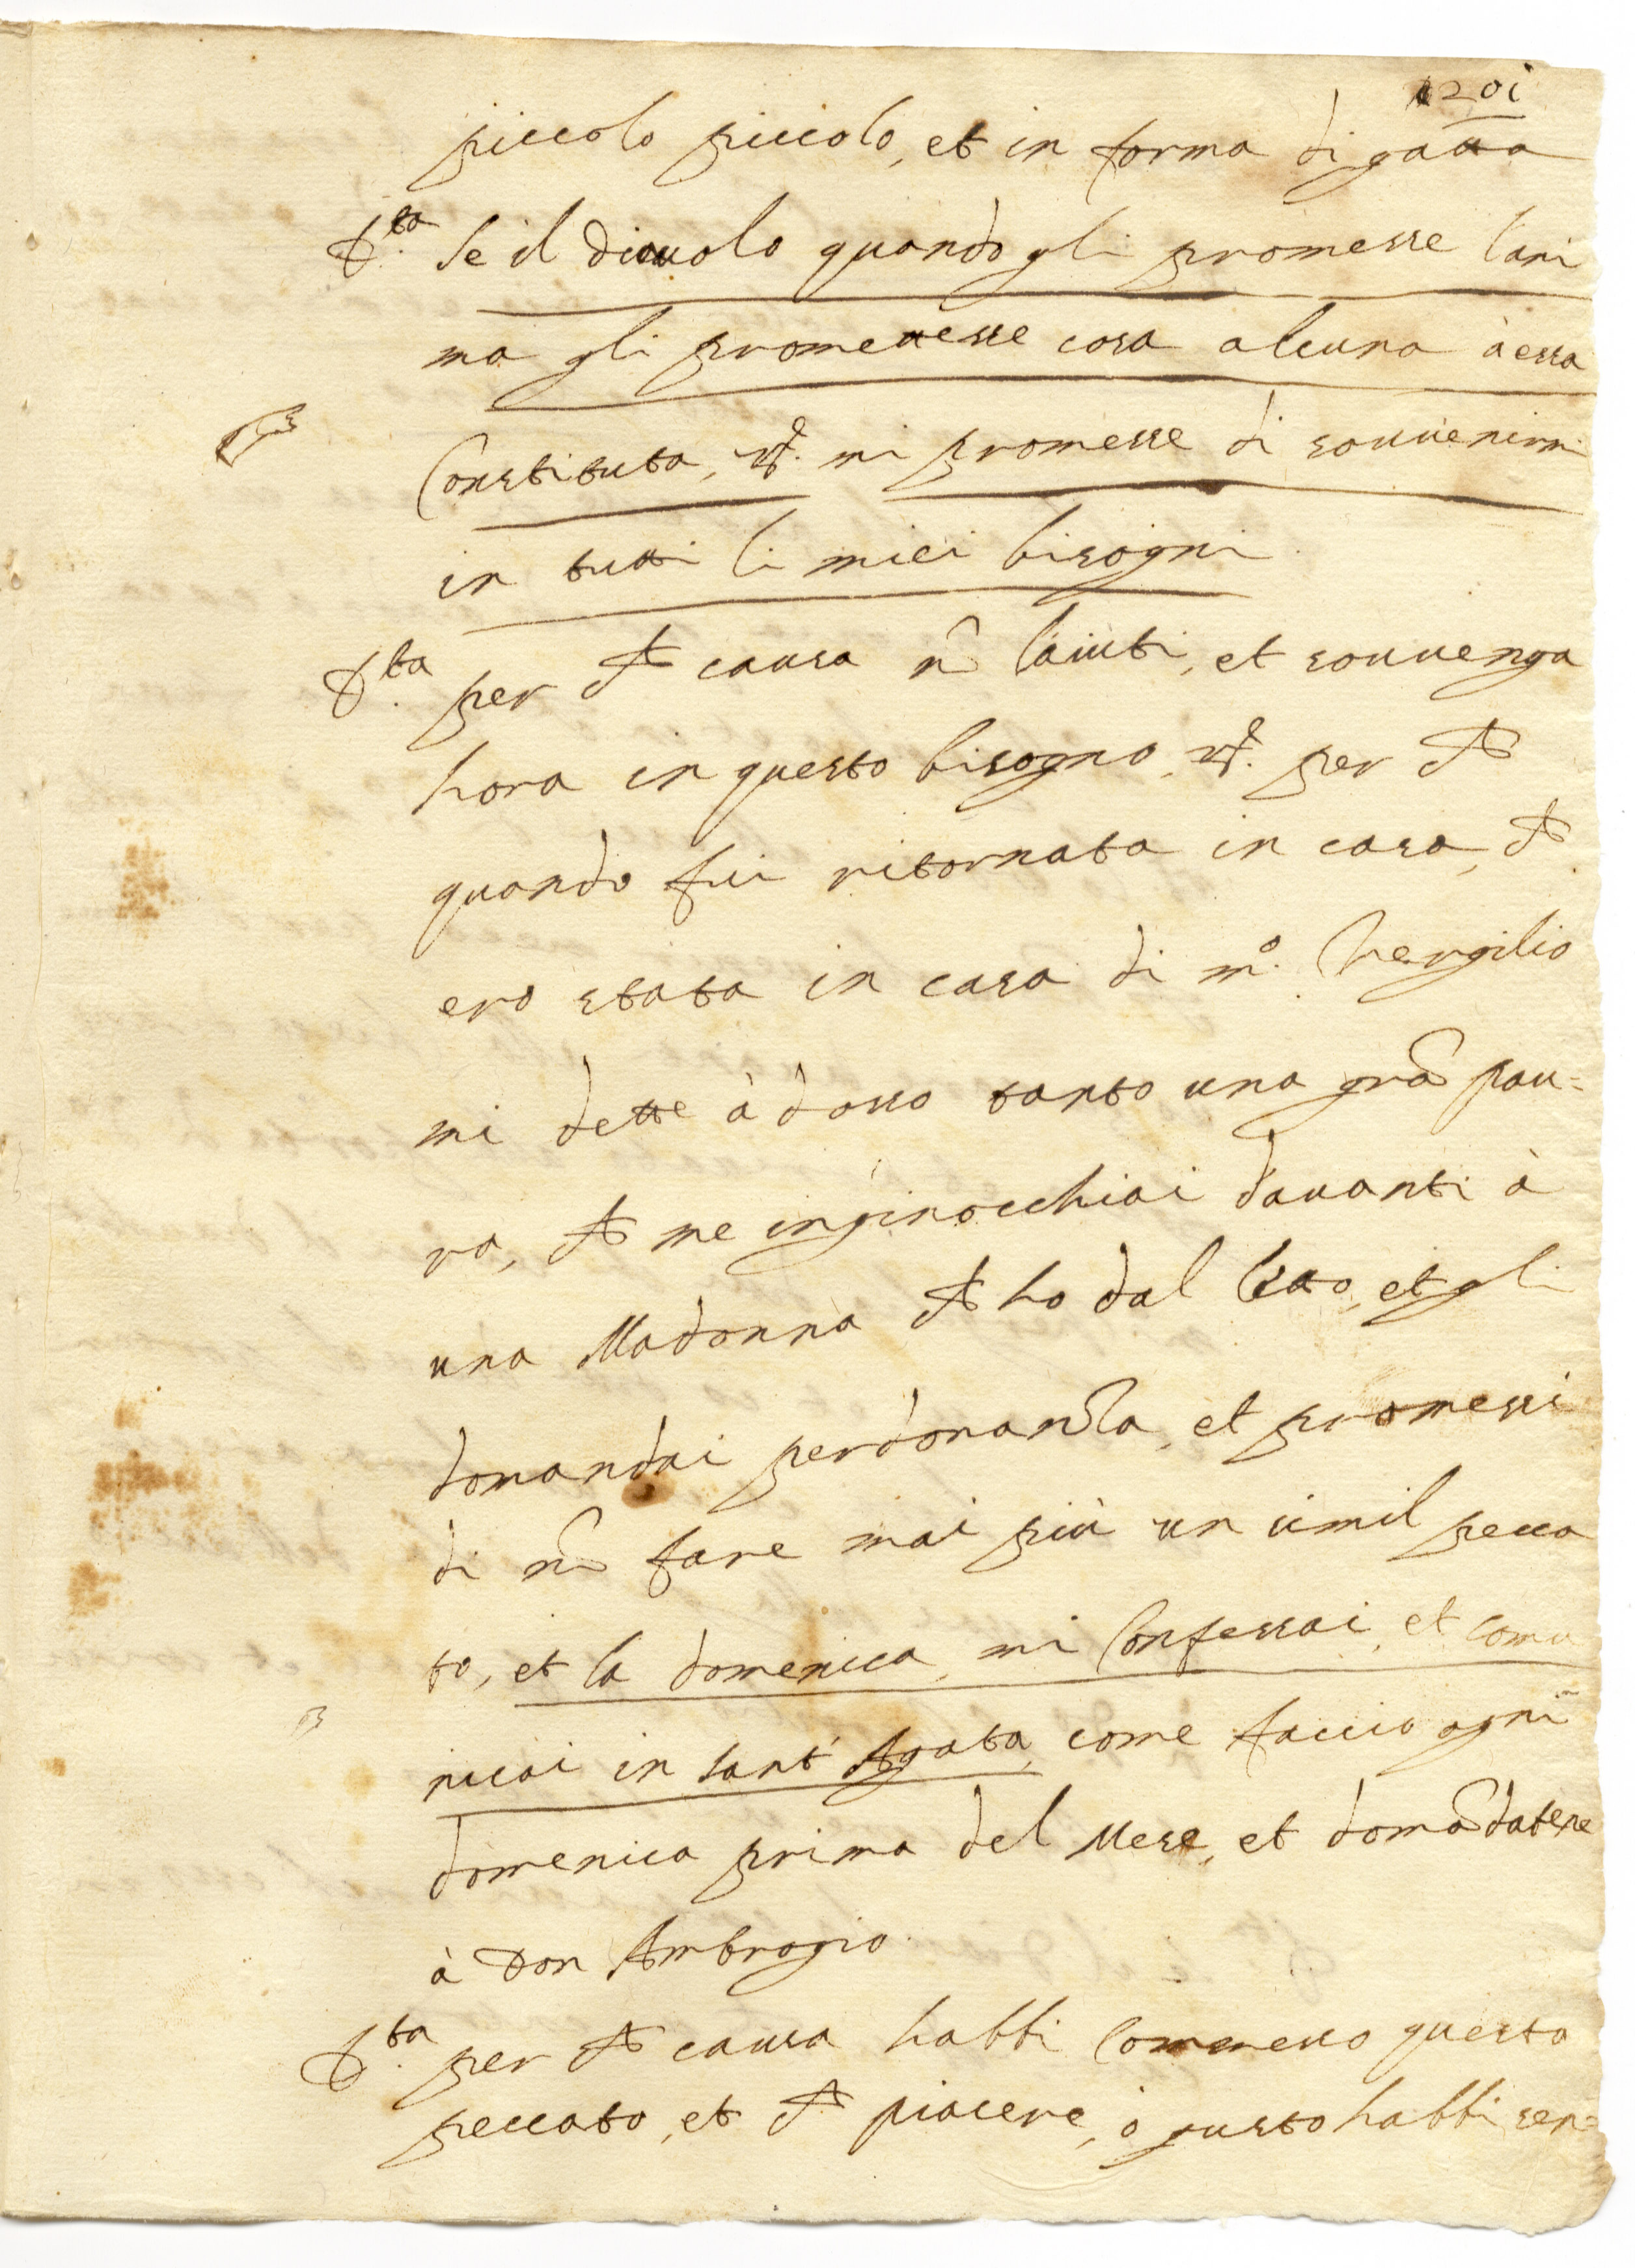 1201
piccolo piccolo, et in forma di gatta
D.ta Se il diauolo quando gli promesse l'ani
ma gli promettesse cosa alcuna à essa
Constituta, Rd. mi promesse di souuenirmi
in tutti li miei bisogni
D.ta per ch causa nõ l'aiuti, et souuenga
hora in questo bisogno, Rd. per ch
quando fui ritornata in casa, ch
ero stata in casa di m.o Vergilio
mi dette à dosso tanto una grã pau=
ra, ch me inginocchiai dauanti à
una Madonna ch ho dal letto, et gli
domandai perdonanza, et promessi
di nõ fare mai più un simil pecca
to, et la domenica, mi Confessai, et comu
nicai in Sant' Agata, come faccio ogni
domenica prima del Mese, et domãdatene
à Don Ambrogio.
D.ta per ch causa habbi Commesso questo
peccato, et ch piacere, ò gusto habbi sen=